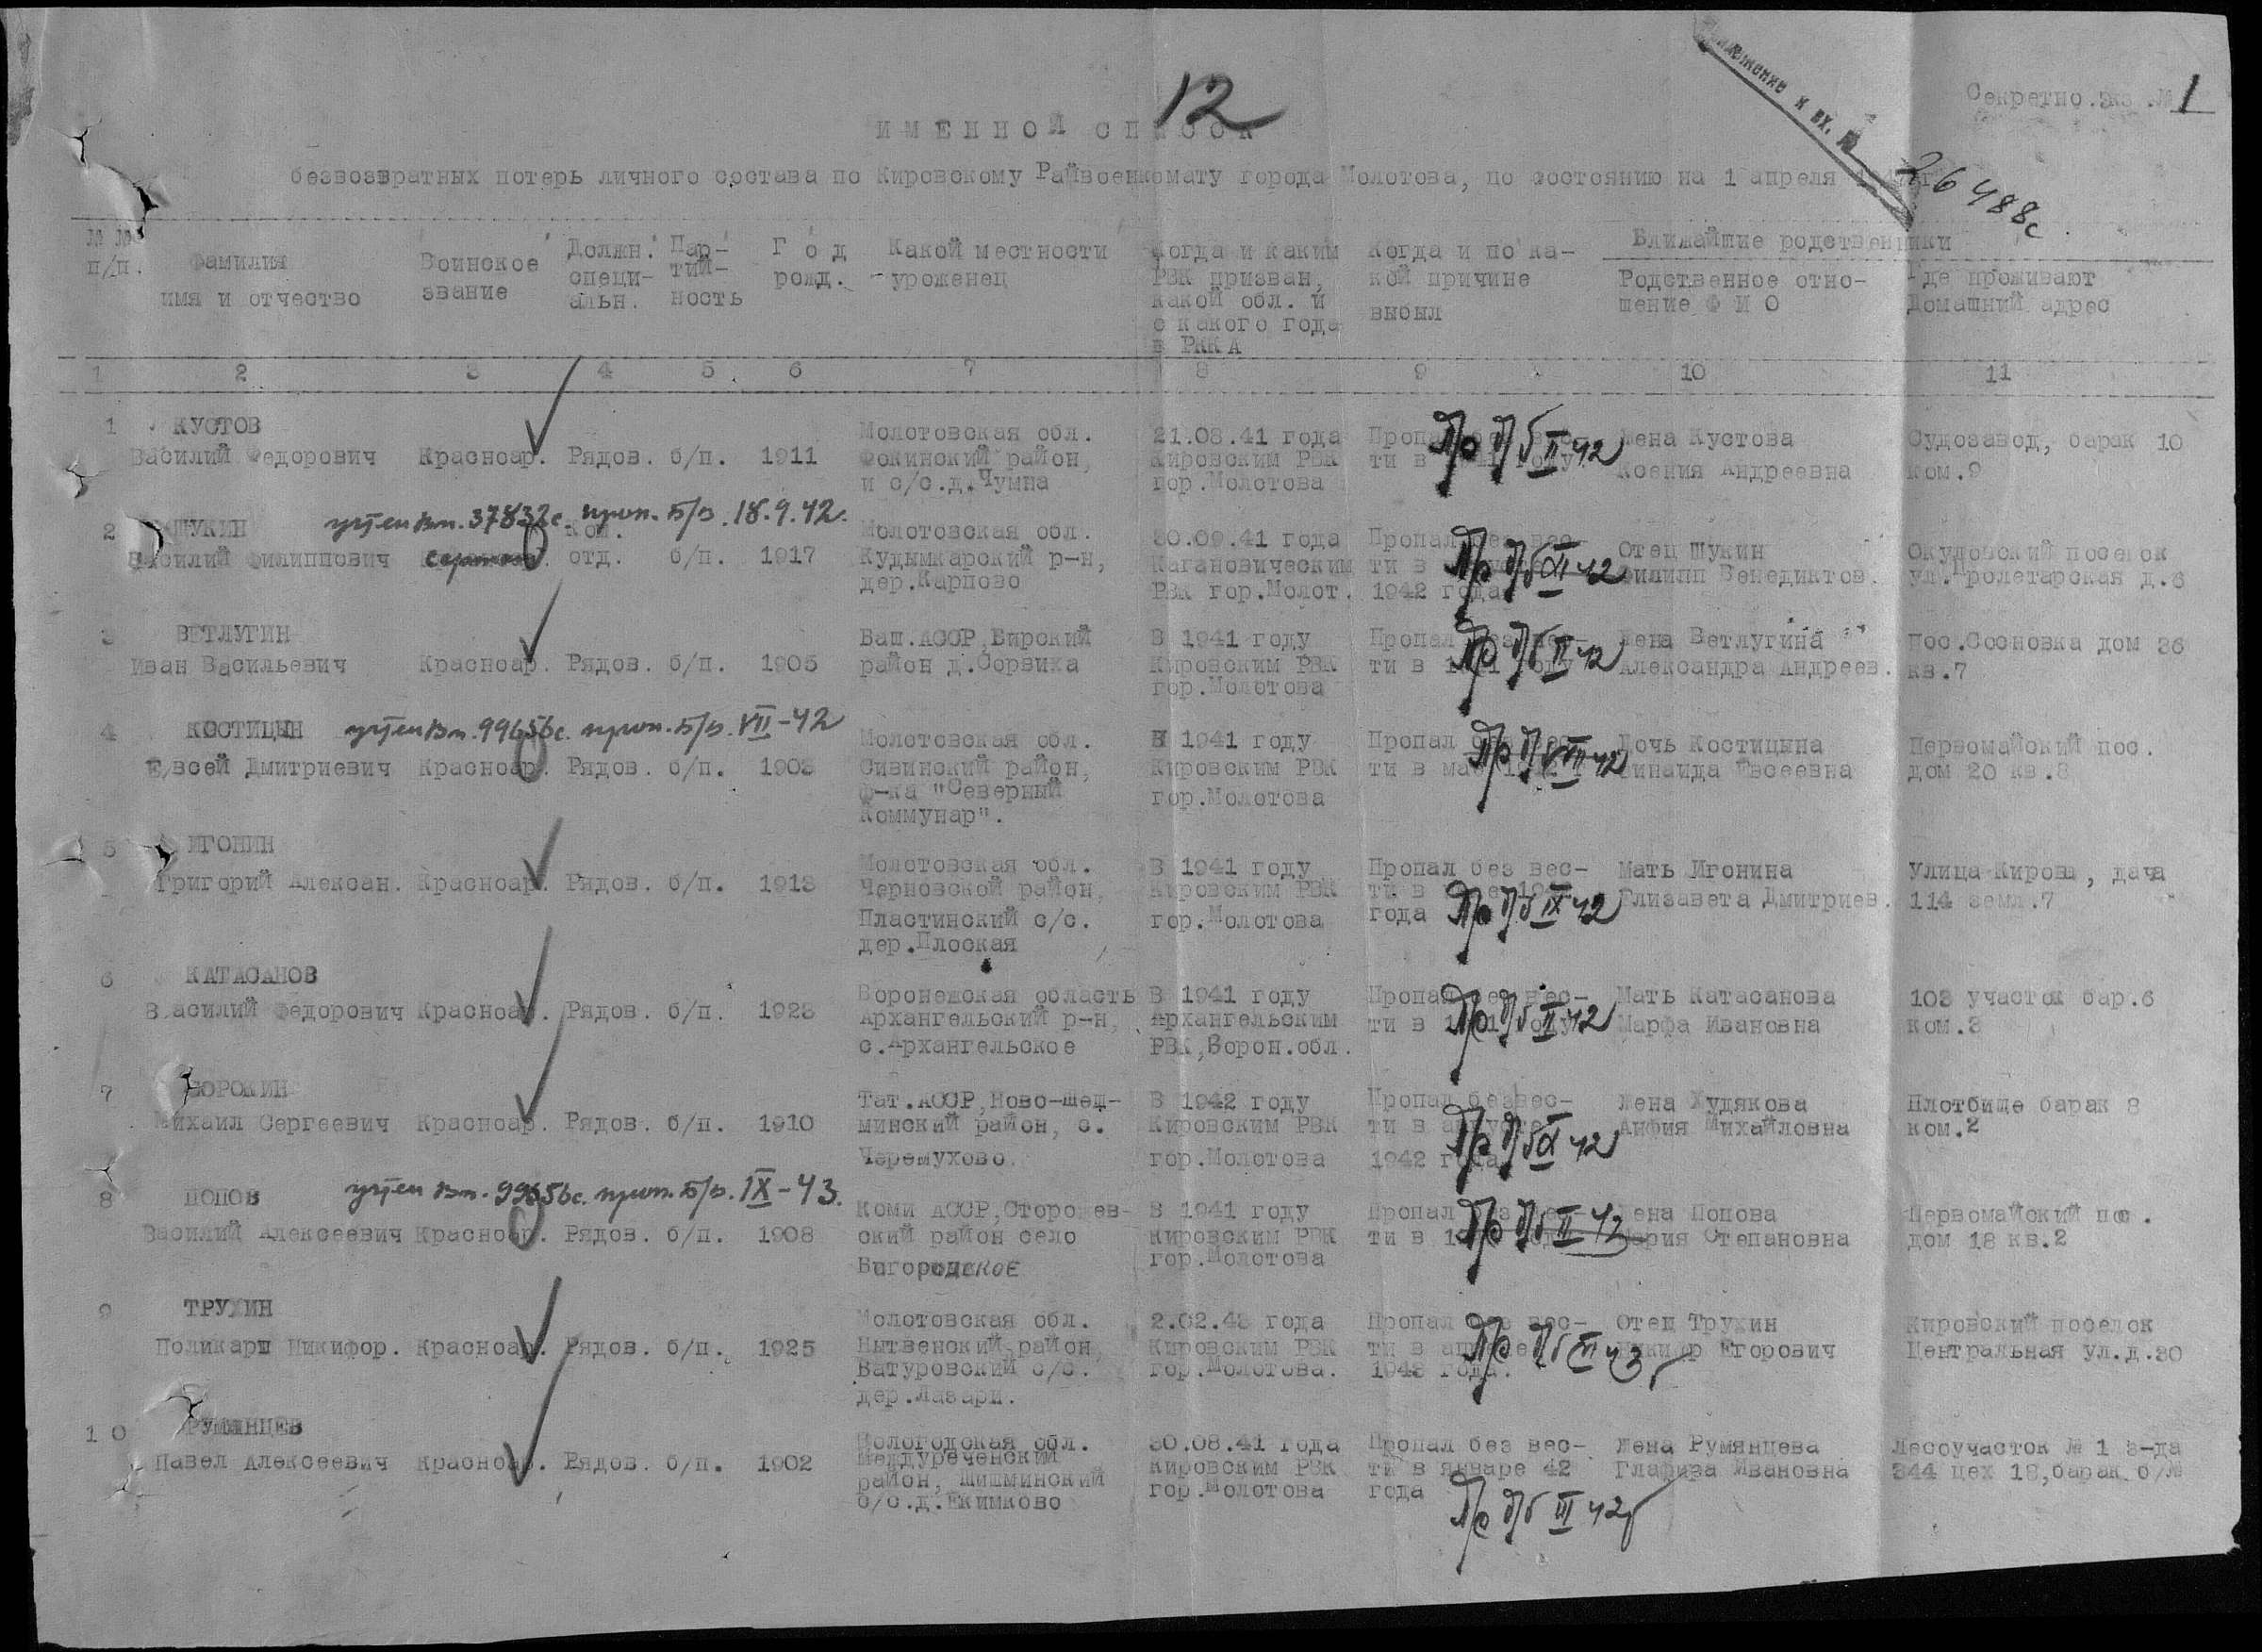 12
Секретно. экз. № 1
Приложение к вх. №
26488с
ИМЕННОЙ СПИСОК
безвозвратных потерь личного состава по Кировскому Райвоенкомату города Молотова, по состоянию на 1 апреля
№ № п/п. Фамилия имя и отчество
Воинское звание
Должн. специ- альн.
Пар- тий- ность
Год рожд.
Какой местности уроженец
Когда и каким РВК призван, какой обл. и с какого года в РККА
Когда и по ка- кой причине выбыл
Ближайшие родственники
Родственное отно- шение Ф И О
Где проживают Домашний адрес
1 2 3 4 5 6 7 8 9 10 11
1 КУСТОВ
Василий Федорович Красноар. Рядов. б/п. 1911
Молотовская обл.
Фокинский район,
и с/с.д.Чумна
21.08.41 года
Кировским РВК
гор.Молотова
Пропал
ти в
Пр б/в II 42
Жена Кустова
Ксения Андреевна
Судозавод, барак 10
ком.9
учтен вх. 37832с. проп. б/в. 18.9.42.
2 ЩУКИН
Василий Филиппович
Ком.
отд. б/п. 1917
Молотовская обл.
Кудымкарский р-н,
дер.Карпово
30.09.41 года
Кагановическим
РВК гор.Молот.
Пропал без вес-
ти в
1942 года
Пр б/в XI 42
Отец Щукин
Филипп Венедиктов.
Окуловский поселок
ул.Пролетарская д.6
3 ВЕТЛУГИН
Иван Васильевич Красноар. Рядов. б/п. 1905
Баш.АССР,Бирский
район д.Сорвиха
В 1941 году
Кировским РВК
гор.Молотова
Пропал без вес-
ти в
Пр б/в II 42
Жена Ветлугина
Александра Андреев.
Пос.Сосновка дом 36
кв.7
учтен вх. 99656с. проп. б/в. VII-42
4 КОСТИЦЫН
Евсей Дмитриевич Красноар. Рядов. б/п. 1903
Молотовская обл.
Сивинский район,
ф-ка "Северный
Коммунар".
В 1941 году
Кировским РВК
гор.Молотова
Пропал без вес-
ти в мае
Пр б/в VII 42
Дочь Костицына
Зинаида Евсеевна
Первомайский пос.
дом 20 кв.8
5 ИГОНИН
Григорий Алексан. Красноар. Рядов. б/п. 1913
Молотовская обл.
Черновской район,
Пластинский с/с.
дер.Плоская
В 1941 году
Кировским РВК
гор.Молотова
Пропал без вес-
ти в
года
Пр б/в IX 42
Мать Игонина
Елизавета Дмитриев.
Улица Кирова, дача
114 земл.7
6 КАТАСАНОВ
Василий Федорович Красноар. Рядов. б/п. 1923
Воронежская область
Архангельский р-н,
с.Архангельское
В 1941 году
Архангельским
РВК,Ворон.обл.
Пропал без вес-
ти в 1941 году
Пр б/в II 42
Мать Катасанова
Марфа Ивановна
103 участок бар.6
ком.3
7 СОРОКИН
Михаил Сергеевич Красноар. Рядов. б/п. 1910
Тат.АССР,Ново-Шеш-
минский район, с.
Черемухово.
В 1942 году
Кировским РВК
гор.Молотова
Пропал безвес-
ти в августе
1942 года
Пр б/в XI 42
Жена Худякова
Анфия Михайловна
Плотбище барак 8
ком.2
учтен вх. 99656с. проп. б/в. IX-43.
8 ПОПОВ
Василий Алексеевич Красноар. Рядов. б/п. 1908
Коми АССР,Сторожев-
ский район село
Богородское
В 1941 году
Кировским РВК
гор.Молотова
Пропал без вес-
ти в
Пр б/в II 43
Жена Попова
Мария Степановна
Первомайский пос.
дом 18 кв.2
9 ТРУХИН
Поликарп Никифор. Красноар. Рядов. б/п. 1925
Молотовская обл.
Нытвенский район,
Батуровский с/с.
дер.Лазари.
2.02.43 года
Кировским РВК
гор.Молотова.
Пропал без вес-
ти в апреле
1943 года.
Пр б/в VI 43
Отец Трухин
Никифор Егорович
Кировский поселок
Центральная ул.д.30
10 РУМЯНЦЕВ
Павел Алексеевич Красноар. Рядов. б/п. 1902
Вологодская обл.
Междуреченский
район, Шишминский
с/с.д.Екимково
30.08.41 года
Кировским РВК
гор.Молотова
Пропал без вес-
ти в январе 42
года
Пр б/в III 42
Жена Румянцева
Глафиза Ивановна
Лесоучасток № 1 з-да
344 цех 18,барак б/№